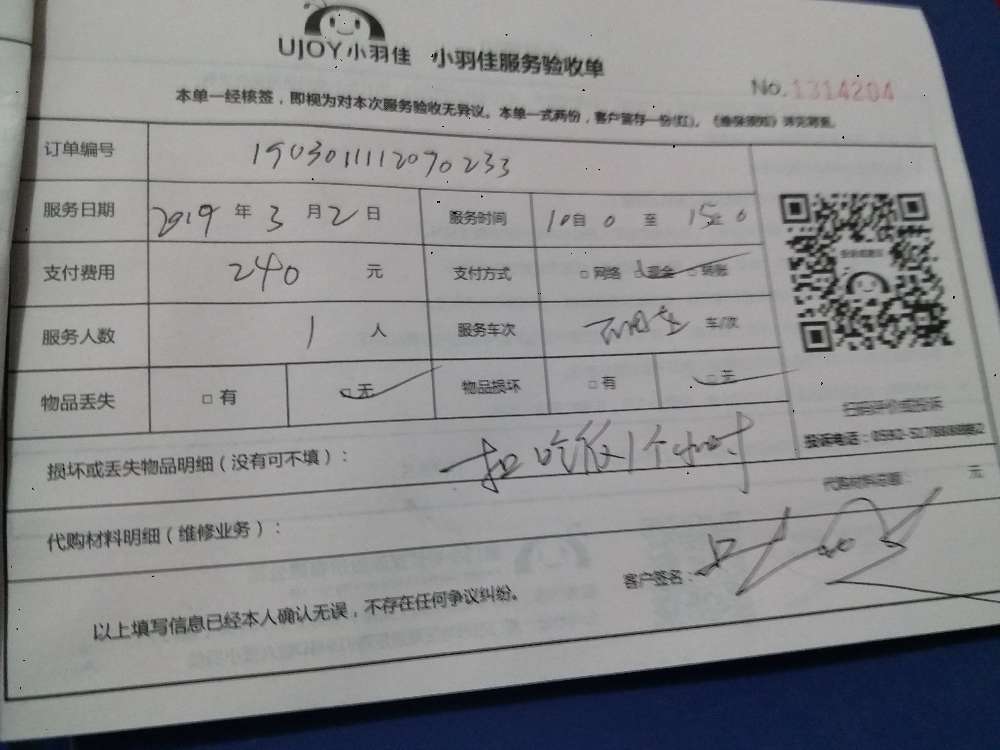 UJOY小羽佳 小羽佳服务验收单
No.1314204
本单一经核签，即视为对本次服务验收无异议。本单一式两份，客户留存一份(红)。
订单编号 1903011112070233
服务日期 2019 年 3 月 2 日 服务时间 10 自 0 至 15 0
支付费用 240 元 支付方式 □ 网络 □ 现金 □ 转账
服务人数 1 人 服务车次 车/次
物品丢失 □ 有 □ 无 物品损坏 □ 有 □ 无
扫码评价或投诉
投诉电话：
损坏或丢失物品明细（没有可不填）： 扣吃饭1个小时
代购材料总额： 元
代购材料明细（维修业务）：
客户签名：
以上填写信息已经本人确认无误，不存在任何争议纠纷。